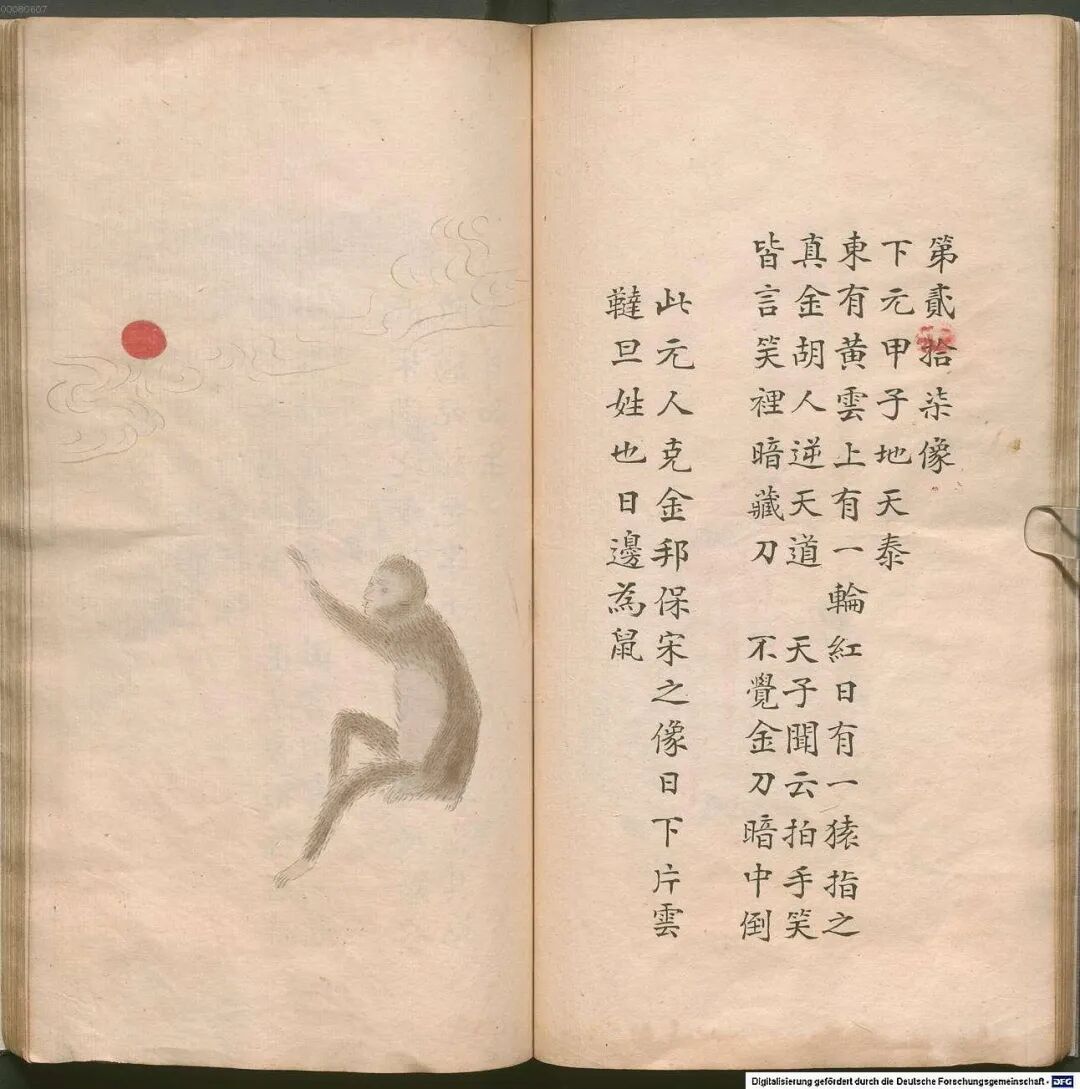 第貳拾柒像
下元甲子地天泰
東有黃雲上有一輪紅日有一猿指之
真金胡人逆天道 天子聞云拍手笑
皆言笑裡暗藏刀 不覺金刀暗中倒
此元人克金邦保宋之像日下片雲
韃旦姓也日邊為鼠
00089607
Digitalisierung gefördert durch die Deutsche Forschungsgemeinschaft - DFG